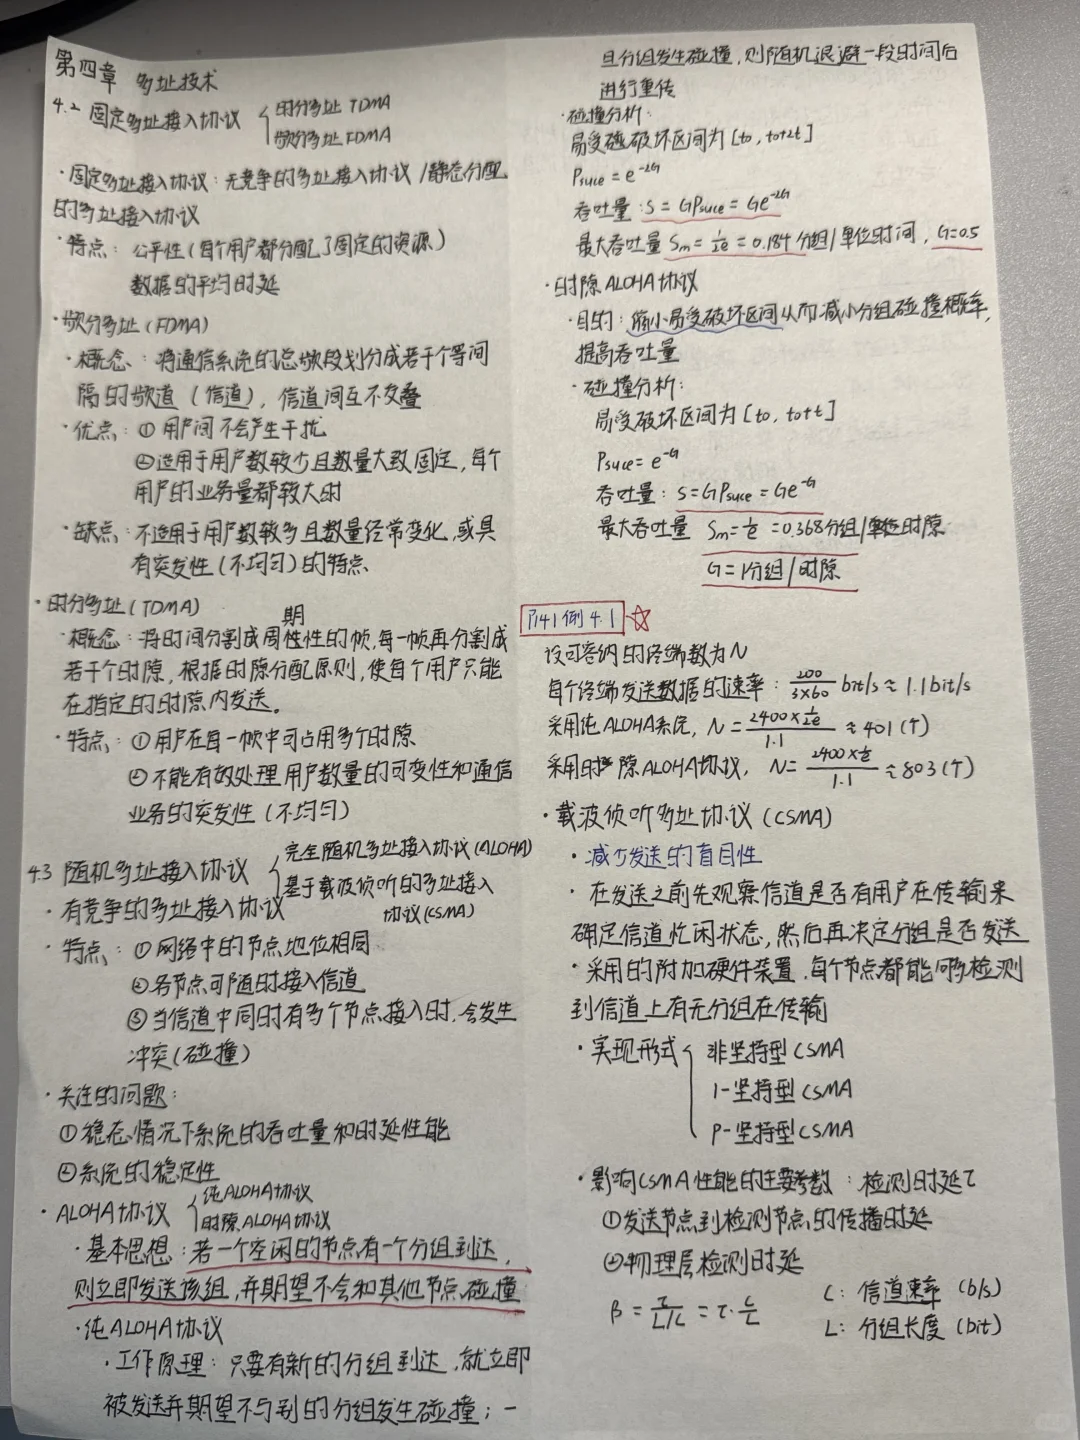 第四章 多址技术
4.2 固定多址接入协议 { 时分多址 TDMA
频分多址 FDMA
·固定多址接入协议：无竞争的多址接入协议/静态分配
的多址接入协议
·特点：公平性（每个用户都分配了固定的资源）
数据的平均时延
·频分多址（FDMA）
·概念：将通信系统的总频段划分成若干个等间
隔的频道（信道），信道间互不交叠
·优点：①用户间不会产生干扰
②适用于用户数较少且数量大致固定，每个
用户的业务量都较大时
·缺点：不适用于用户数较多且数量经常变化，或具
有突发性（不均匀）的特点
·时分多址（TDMA）
期
·概念：将时间分割成周性性的帧，每一帧再分割成
若干个时隙，根据时隙分配原则，使每个用户只能
在指定的时隙内发送。
·特点：①用户在每一帧中可占用多个时隙
②不能有效处理用户数量的可变性和通信
业务的突发性（不均匀）
4.3 随机多址接入协议 { 完全随机多址接入协议（ALOHA）
基于载波侦听的多址接入
协议（CSMA）
·有竞争的多址接入协议
·特点：①网络中的节点地位相同
②各节点可随时接入信道
③当信道中同时有多个节点接入时，会发生
冲突（碰撞）
·关注的问题：
①稳态情况下系统的吞吐量和时延性能
②系统的稳定性
·ALOHA协议 { 纯ALOHA协议
时隙ALOHA协议
·基本思想：若一个空闲的节点有一个分组到达，
则立即发送该组，并期望不会和其他节点碰撞
·纯ALOHA协议
·工作原理：只要有新的分组到达，就立即
被发送并期望不与别的分组发生碰撞；一
旦分组发生碰撞，则随机退避一段时间后
进行重传
·碰撞分析：
易受破坏区间为[t0，t0+2t]
Psucc = e^-2G
吞吐量：S = GPsucc = Ge^-2G
最大吞吐量 Sm = 1/2e = 0.184 分组/单位时间，G=0.5
·时隙ALOHA协议
·目的：缩小易受破坏区间从而减小分组碰撞概率，
提高吞吐量
·碰撞分析：
易受破坏区间为[t0，t0+t]
Psucc = e^-G
吞吐量：S=GPsucc = Ge^-G
最大吞吐量 Sm = 1/e = 0.368分组/单位时隙
G = 1分组/时隙
P141 例4.1 ☆
设可容纳的终端数为N
每个终端发送数据的速率：200/3×60 bit/s ≈ 1.1bit/s
采用纯ALOHA系统，N = 2400×1/2e / 1.1 ≈ 401（个）
采用时隙ALOHA协议，N = 2400×1/e / 1.1 ≈ 803（个）
·载波侦听多址协议（CSMA）
·减少发送的盲目性
·在发送之前先观察信道是否有用户在传输来
确定信道忙闲状态，然后再决定分组是否发送
·采用的附加硬件装置，每个节点都能够检测
到信道上有无分组在传输
·实现形式 { 非坚持型CSMA
1-坚持型CSMA
P-坚持型CSMA
·影响CSMA性能的主要参数：检测时延τ
①发送节点到检测节点的传播时延
②物理层检测时延
β = τ/(L/C) = τ·C/L
C：信道速率（b/s）
L：分组长度（bit）